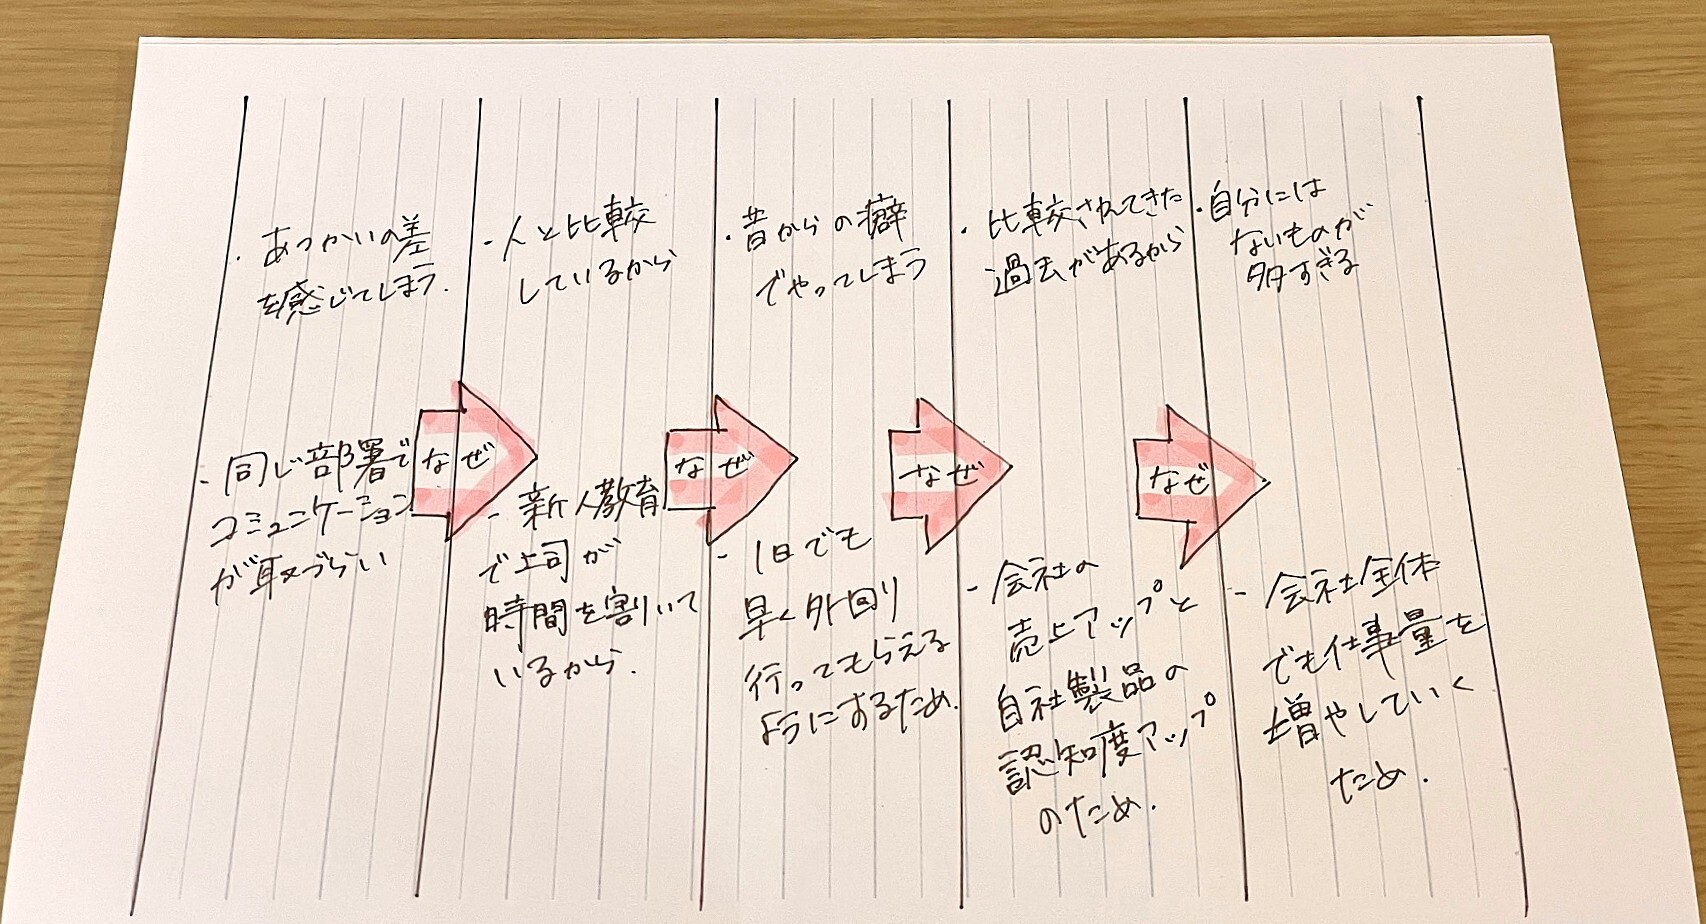 ・あつかいの差
を感じてしまう.
・人と比較
しているから
・昔からの癖
でやってしまう
・比較されてきた
過去があるから
・自分には
ないものが
多すぎる
なぜ
なぜ
なぜ
なぜ
・同じ部署で
コミュニケーション
が取づらい
・新人教育
で上司が
時間を割いて
いるから.
・1日でも
早く外回り
行ってもらえる
ようにするため.
・会社の
売上アップと
自社製品の
認知度アップ
のため.
・会社全体
でも仕事量を
増やしていく
ため.